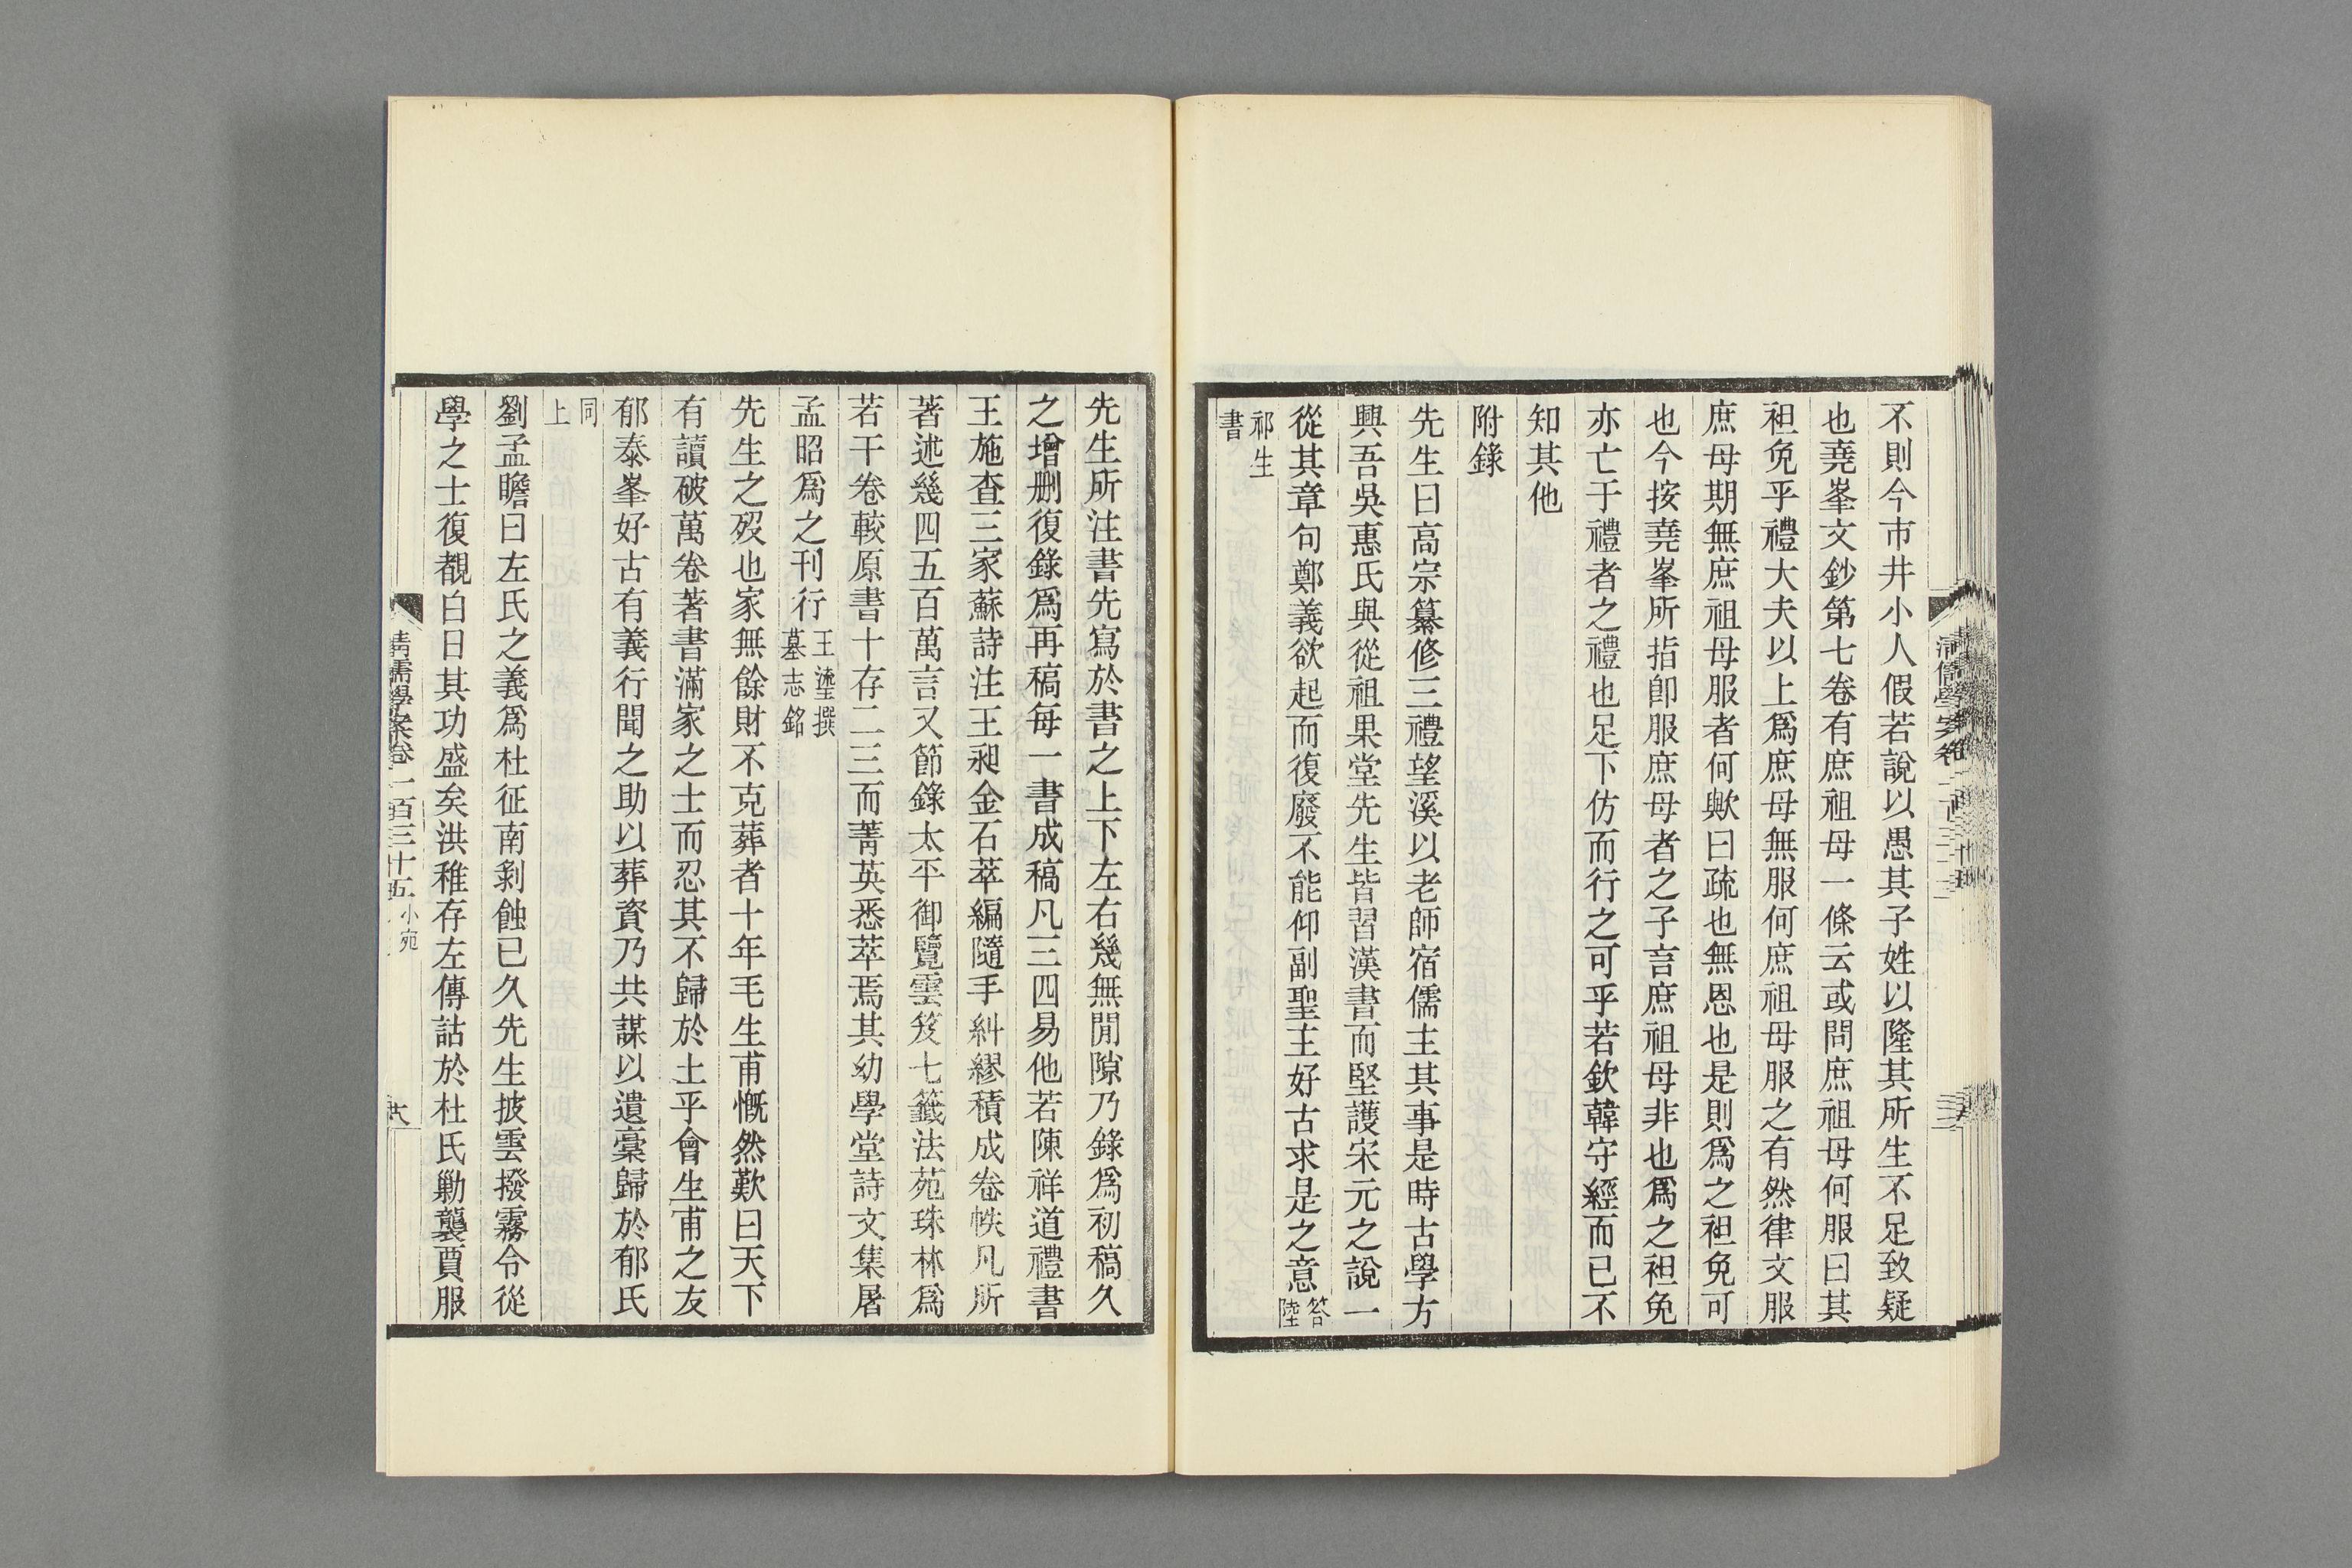 不則今市井小人假若說以愚其子姓以隆其所生不足致疑
也堯峯文鈔第七卷有庶祖母一條云或問庶祖母何服曰其
袒免乎禮大夫以上爲庶母無服何庶祖母服之有然律文服
庶母期無庶祖母服者何歟曰疏也無恩也是則爲之袒免可
也今按堯峯所指卽服庶母者之子言庶祖母非也爲之袒免
亦亡于禮者之禮也足下仿而行之可乎若欽韓守經而已不
知其他
附錄
先生曰高宗纂修三禮望溪以老師宿儒主其事是時古學方
興吾吳惠氏與從祖果堂先生皆習漢書而堅護宋元之說一
從其章句鄭義欲起而復廢不能仰副聖主好古求是之意答
陸
祁生
書
先生所注書先寫於書之上下左右幾無閒隙乃錄爲初稿久
之增刪復錄爲再稿每一書成稿凡三四易他若陳祥道禮書
王施查三家蘇詩注王昶金石萃編隨手糾繆積成卷帙凡所
著述幾四五百萬言又節錄太平御覽雲笈七籤法苑珠林爲
若干卷較原書十存二三而菁英悉萃焉其幼學堂詩文集屠
孟昭爲之刊行王瀣撰
墓志銘
先生之歿也家無餘財不克葬者十年毛生甫慨然歎曰天下
有讀破萬卷著書滿家之士而忍其不歸於土乎會生甫之友
郁泰峯好古有義行聞之助以葬資乃共謀以遺稾歸於郁氏
同
上
劉孟瞻曰左氏之義爲杜征南剝蝕已久先生披雲撥霧令從
學之士復覩白日其功盛矣洪稚存左傳詁於杜氏勦襲賈服
清儒學案卷一百三十五
小宛